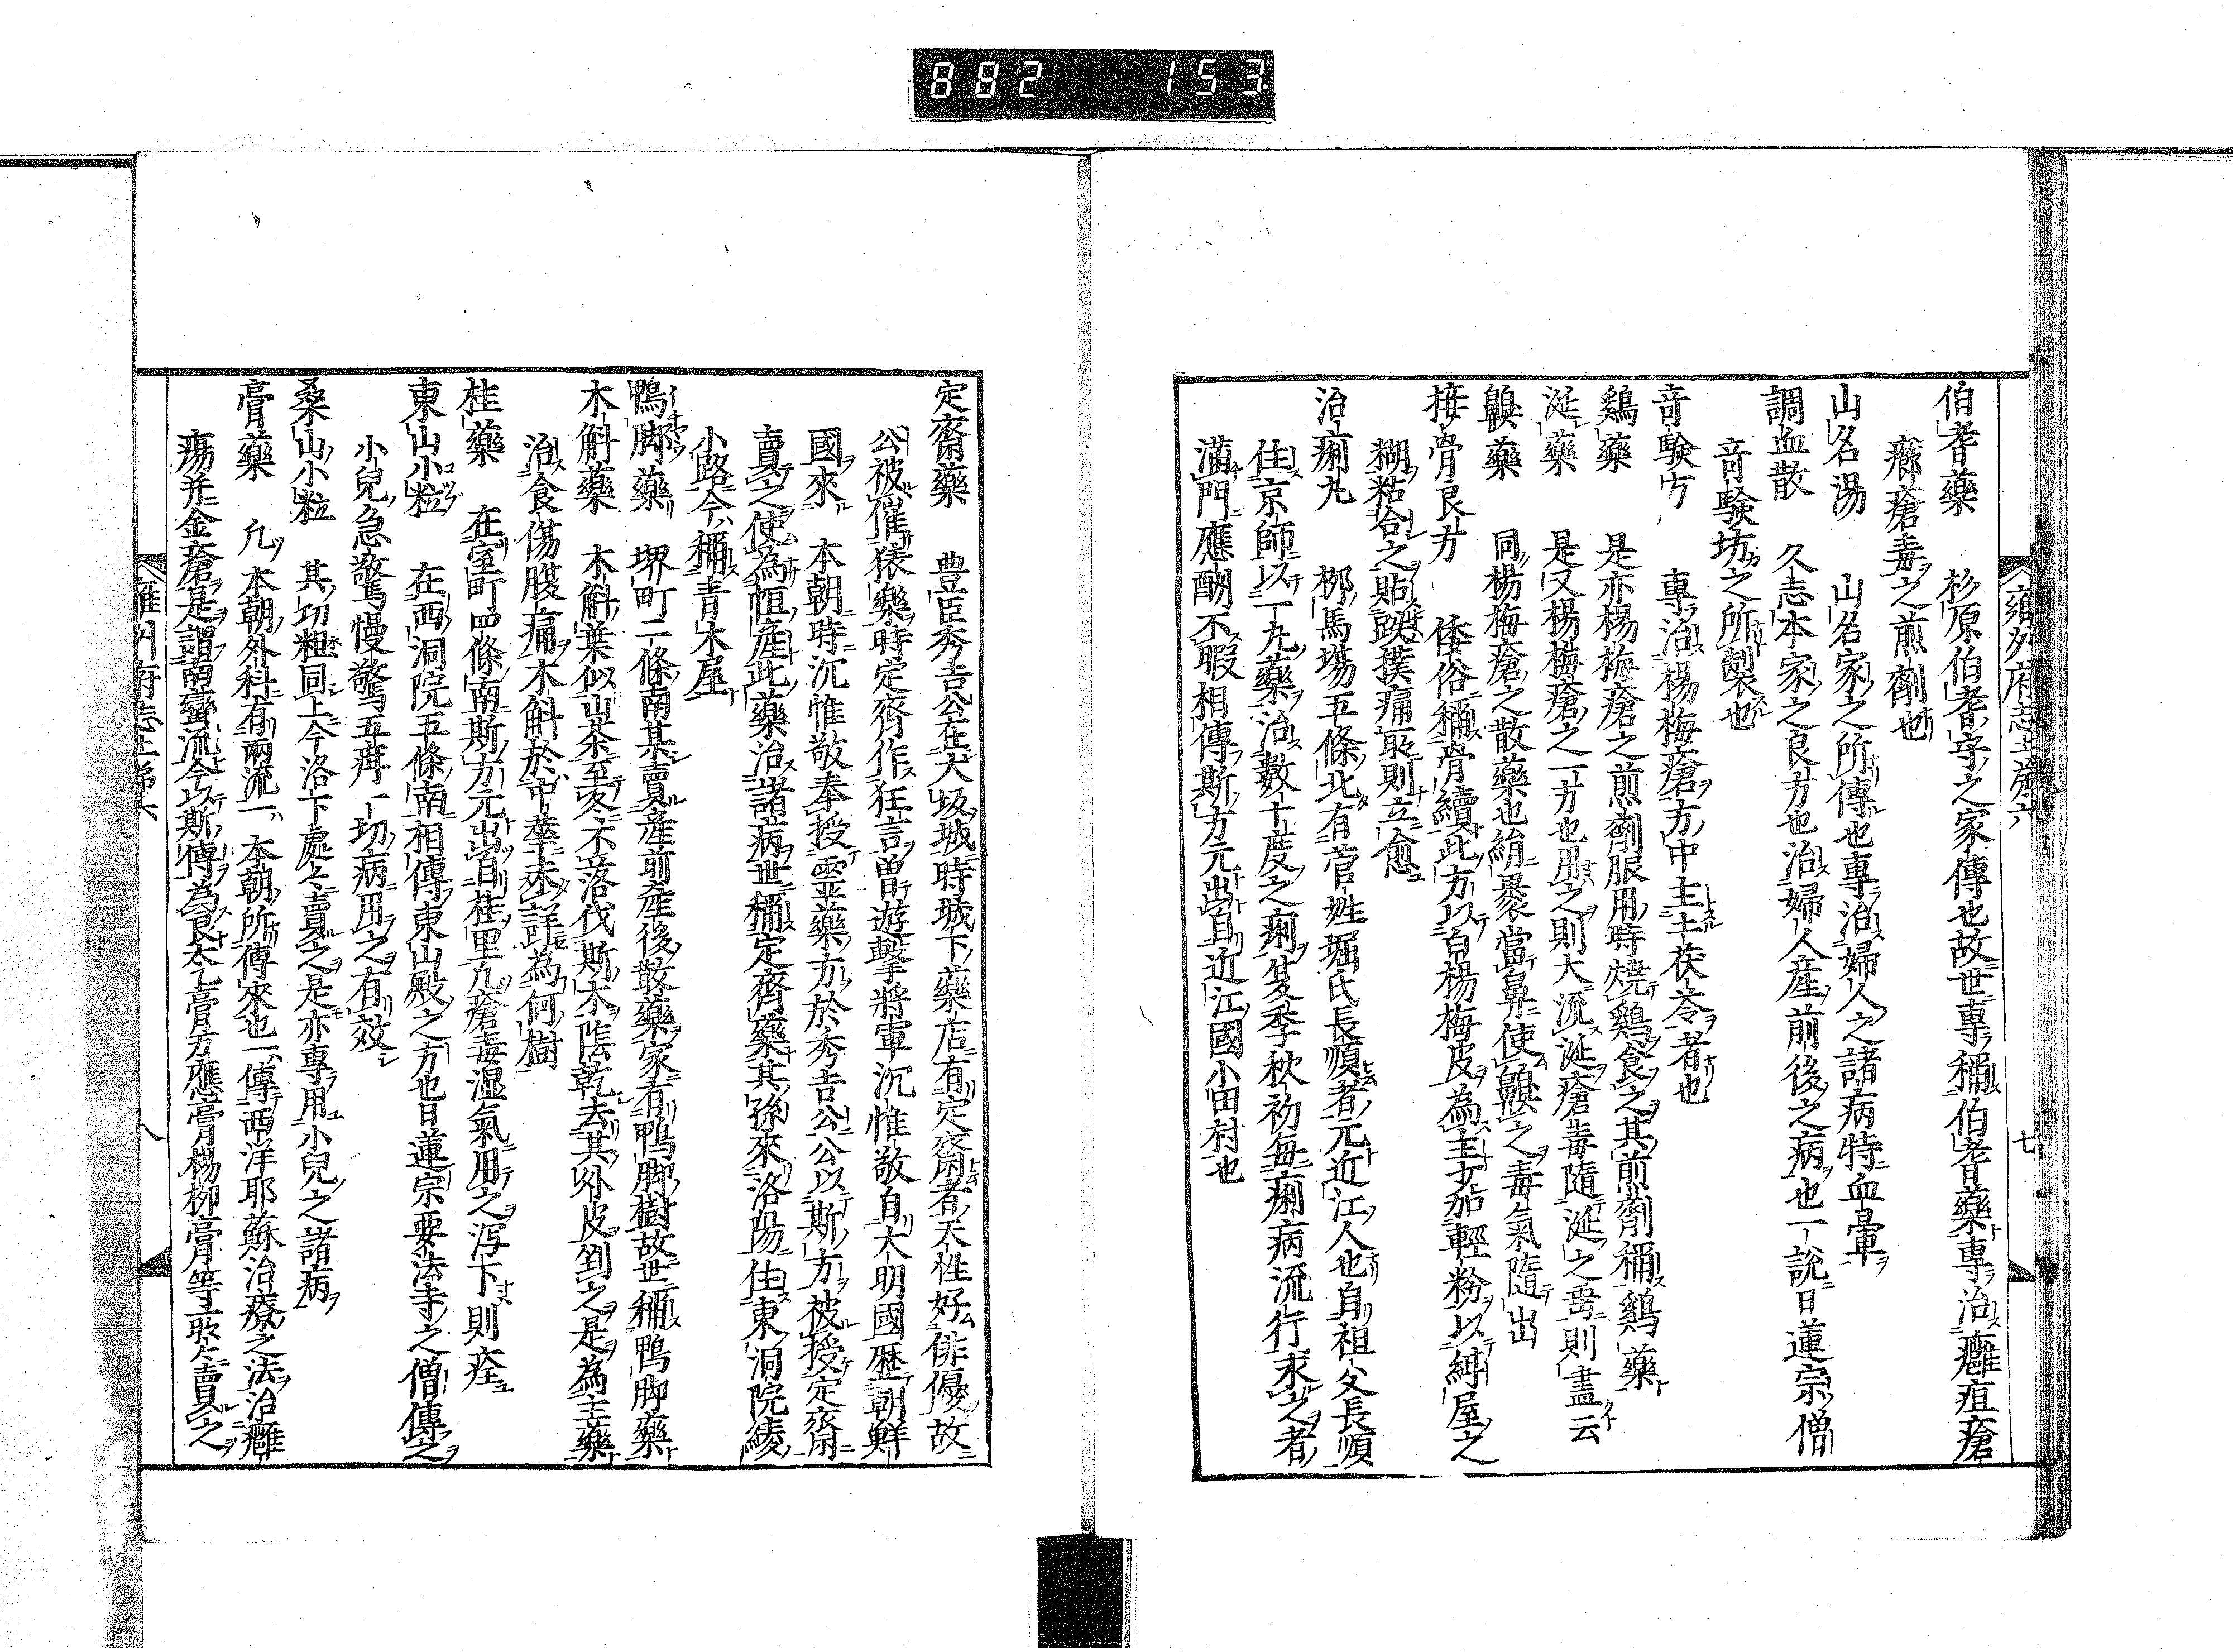 882 153
雍州府志土産六
七
伯耆藥 杉原伯耆守之家傳也故世專稱伯耆藥專治癰疽瘡
癤瘡毒之煎劑也
山名湯 山名家之所傳也專治婦人之諸病特血暈
調血散 久志本家之良方也治婦人産前後之病也一說日蓮宗僧
竒驗坊之所製也
竒驗方 專治楊梅瘡方中主土茯苓者也
鷄藥 是亦楊梅瘡之煎劑服用時燒鷄食之其煎劑稱鷄藥
涎藥 是又楊梅瘡之一方也用之則大流涎瘡毒隨涎之出則盡云
齅藥 同楊梅瘡之散藥也絹裹當鼻使齅之毒氣隨出
接骨良方 倭俗稱骨續此方以白楊梅皮為主少加輕粉以綍屋之
糊粘合之貼跌撲痛㪅則立愈
治痢丸 栁馬塲五條北有菅姓堀氏長順者元近江人也自祖父長順
住京師以一丸藥治數十度之痢夏季秋初每痢病流行求之者
滿門應酬不暇相傳斯方元出自近江國小田村也
定齋藥 豊臣秀吉公在大坂城時城下藥店有定齋者天性好俳優故
公被催猿樂時定齋作狂言曽遊擊將軍沉惟敬自大明國歷朝鮮
國來 本朝時沉惟敬奉授靈藥方於秀吉公公以斯方被授定齋
賣之使為恒産此藥治諸病世稱定齋藥其孫來洛陽住東洞院綾
小路今稱青木屋
鴨脚藥 堺町二條南某賣産前産後散藥家有鴨脚樹故世稱鴨脚藥
木斛藥 木斛葉似山茶至冬不落伐斯木陰乾去其外皮剉之是為主藥
治食傷腹痛木斛於中華未詳為何樹
桂藥 在室町四條南斯方元出自桂里凡瘡毒湿氣用之泻下則痊
東山小粒 在西洞院五條南相傳東山殿之方也日蓮宗要法寺之僧傳之
小兒急驚慢驚五疳一切病用之有效
桑山小粒 其功粗同上今洛下處々賣之是亦專用小兒之諸病
膏藥 凢本朝外科有兩流一本朝所傳來也一傳西洋耶蘇治療之法治癰
瘍并金瘡是謂南蠻流今以斯傳為良太乙膏万應膏楊栁膏等㪚々賣之
雍州府志土第六
八